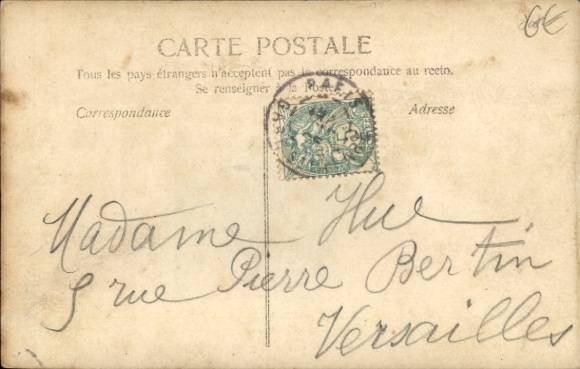 6€
CARTE POSTALE
Tous les pays étrangers n'acceptent pas la correspondance au recto.
Se renseigner à la Poste
Correspondance
Adresse
PARIS
Madame Hue
5 rue Pierre Bertin
Versailles